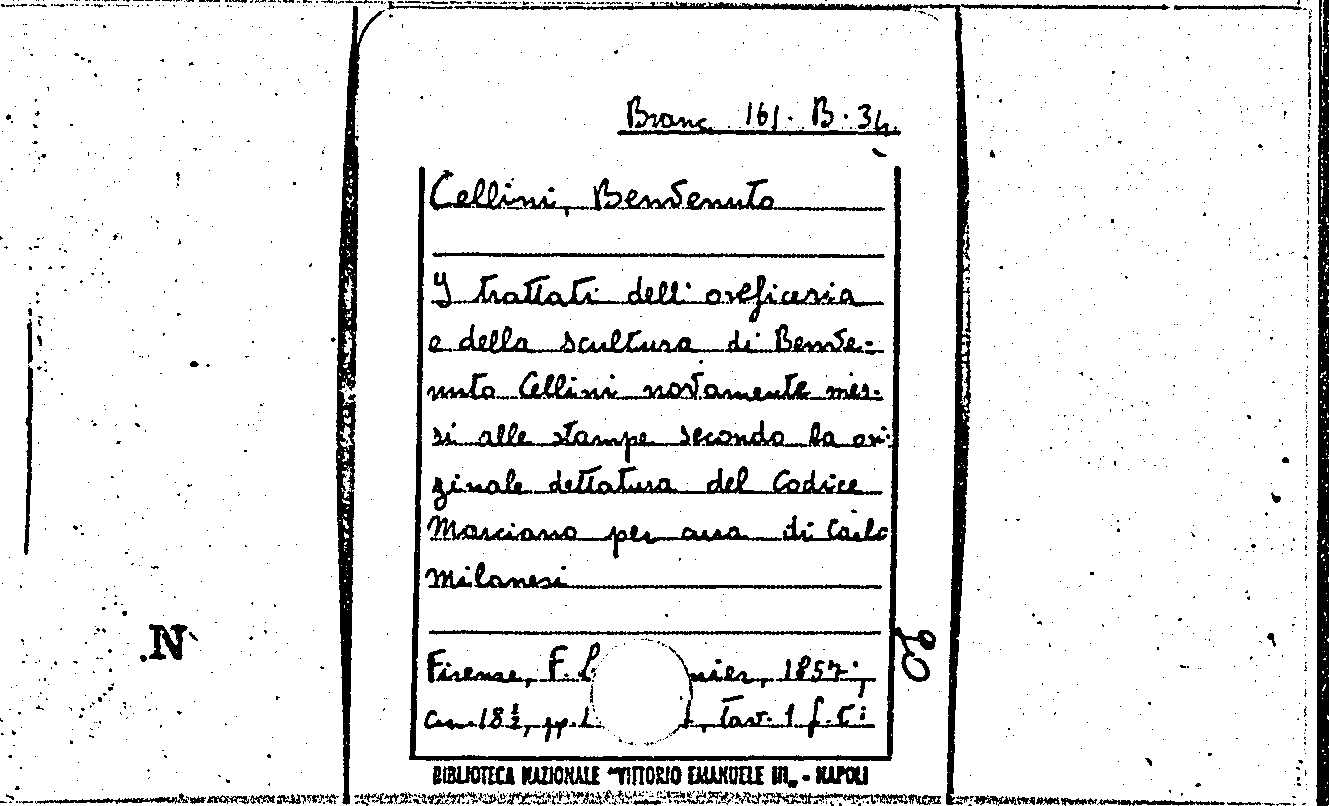 Branc. 161. B. 34.
Cellini, Benvenuto
I trattati dell'oreficeria
e della scultura di Benve-
nuto Cellini novamente mes-
si alle stampe secondo la ori-
ginale dettatura del Codice
Marciano per cura di Carlo
Milanesi
Firenze, F. L nier, 1857;
cm. 18½, pp. , Tav. 1 f.t.
.N
BIBLIOTECA NAZIONALE "VITTORIO EMANUELE III" - NAPOLI